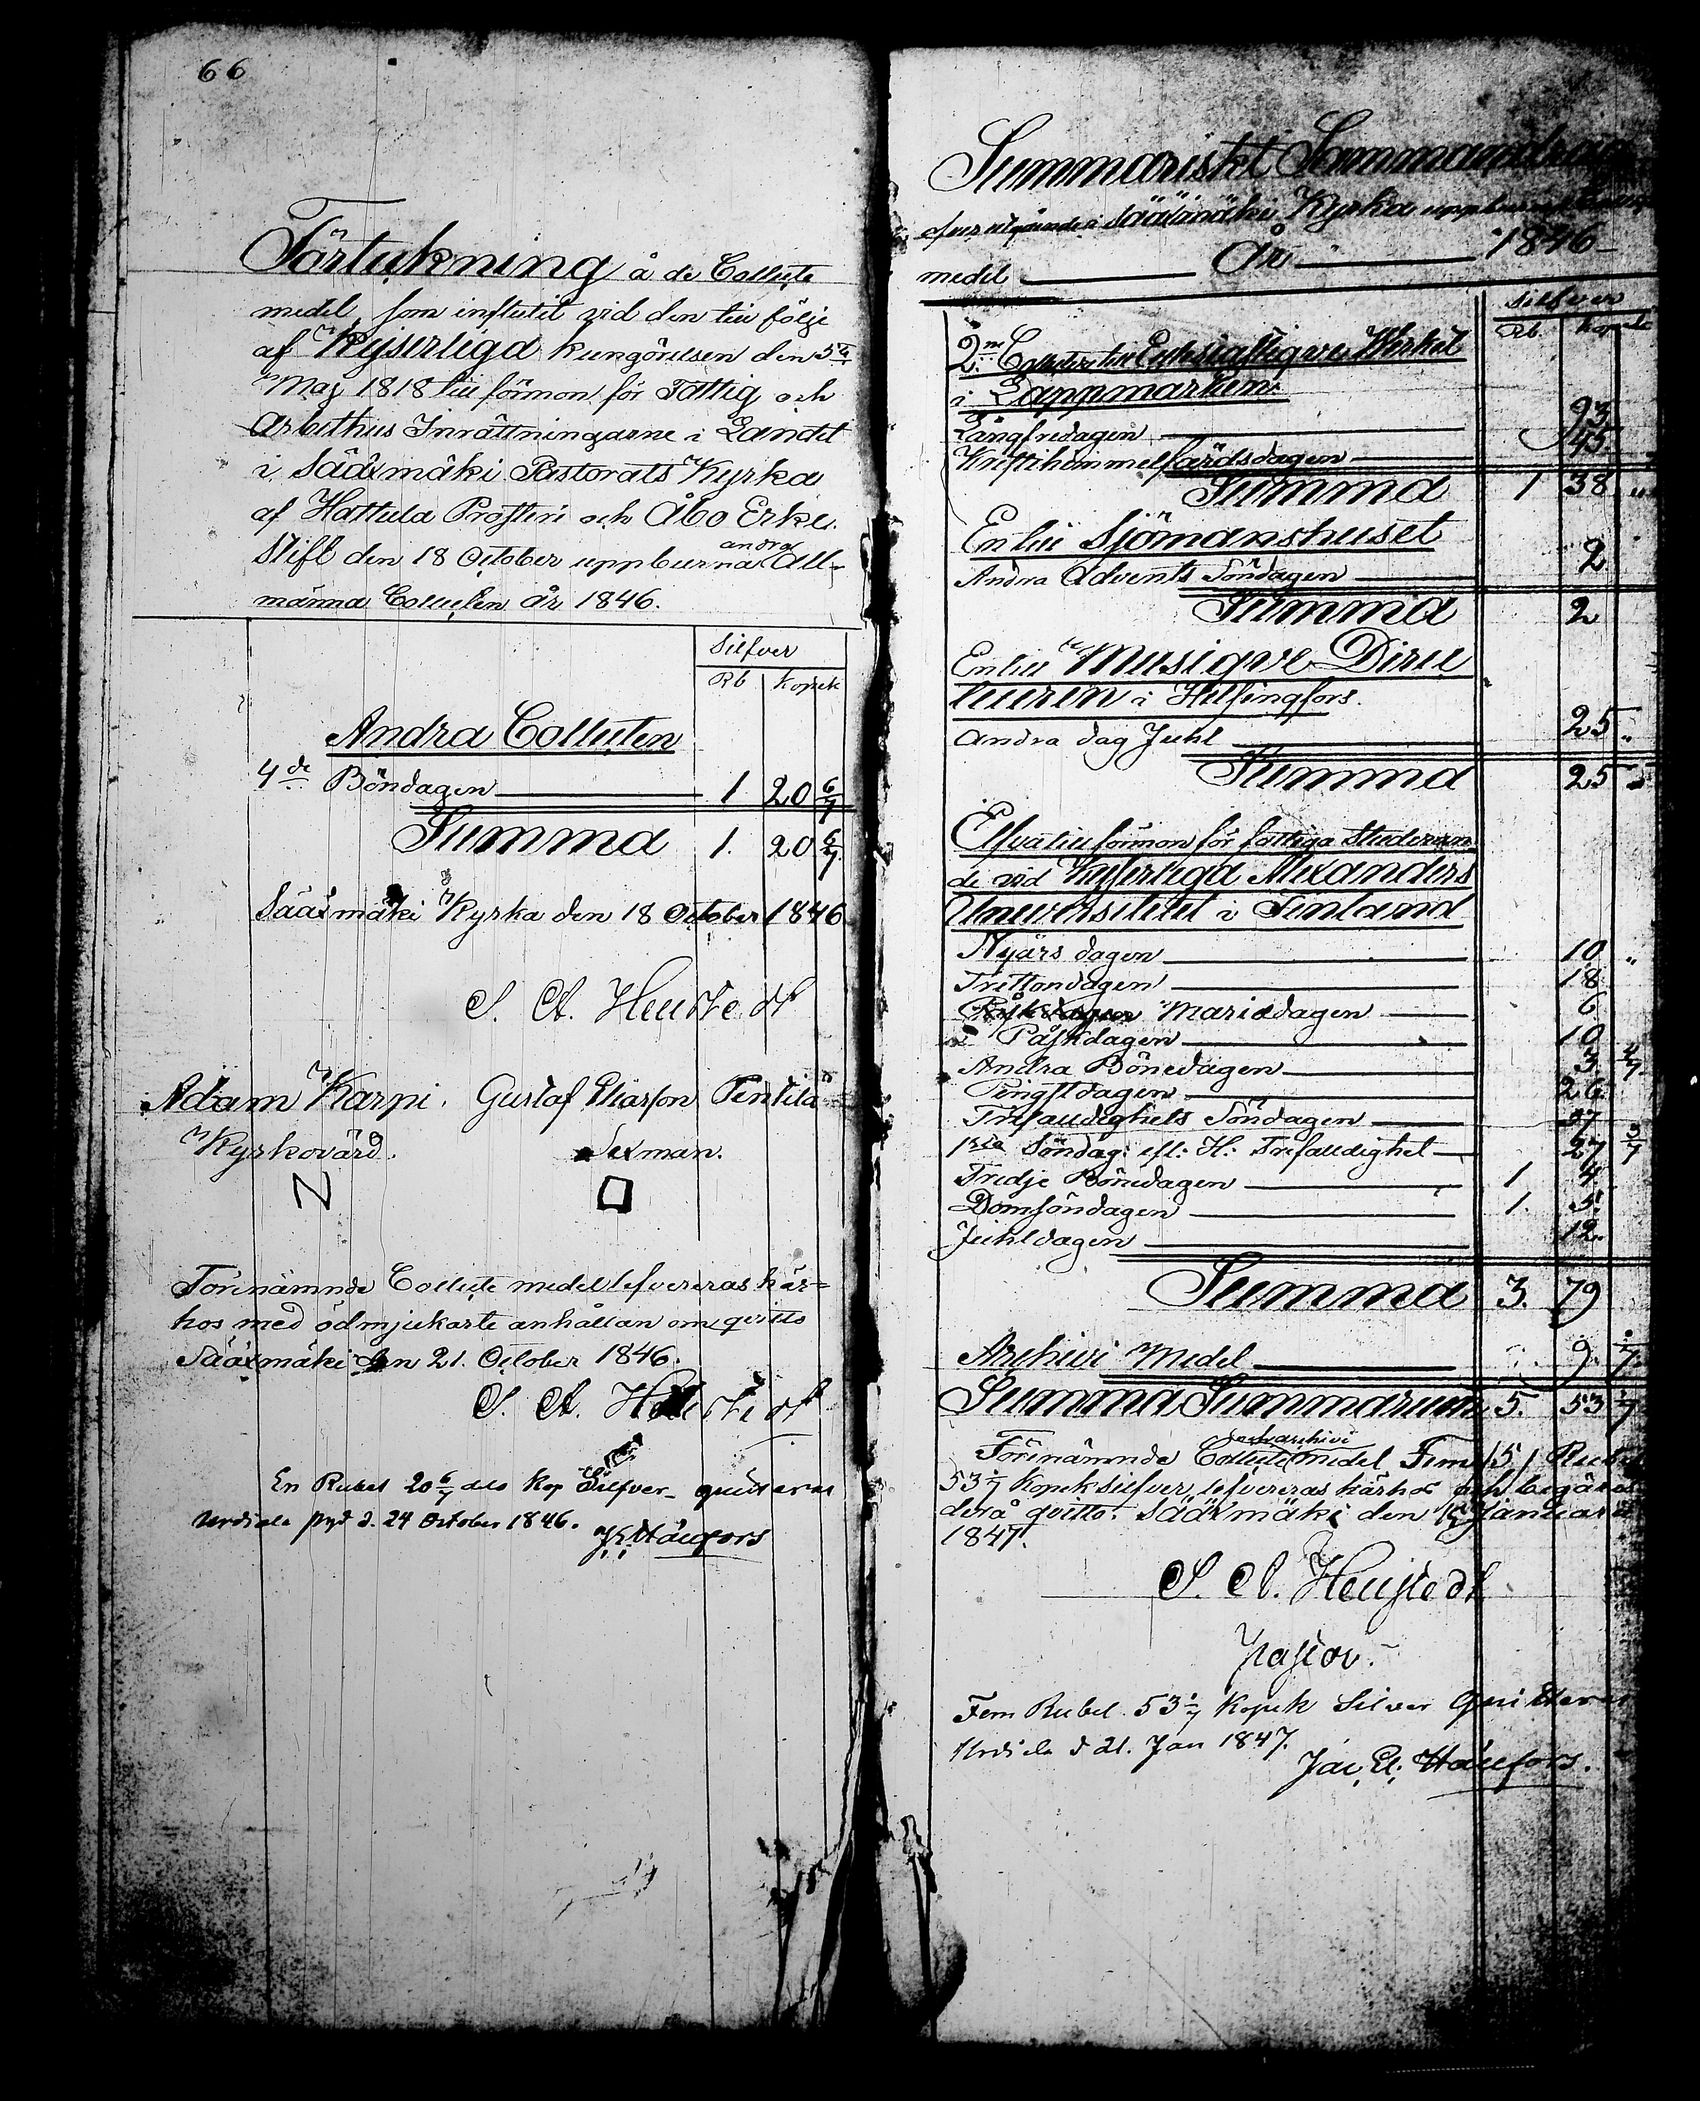 66
Förtekning å de Collecte
medel, som influtit vid den till följe
af Kejserliga kungörelsen den 5te
Maj 1818 till förmon för Fattig och
Arbethus Inrättningarne i Landet
i Sääxmäki Pastorats Kyrka
af Hattula Prosteri och Åbo Erke
Stift den 18 October uppburna andra All-
männa Collecten år 1846.
Silfver
Rb Kopek
Andra Collecten
4de Böndagen 1 20 6/7
Summa 1. 20 6/7
Sääxmäki Kyrka den 18 October 1846
S. A. Hellstedt
Adam Karpi. Gustaf Eliasson Penttilä
Kyrkovärd. Sexman.
Förenämnde Collecte medel lefvereras här-
hos med ödmjukaste anhållan om qvitto
Sääxmäki den 21. October 1846.
S. A. Hellstedt
En Rubel 20 6/7 dels Kop Silfver quitteras
Urdiala pgd d. 24 October 1846.
Hällfors
Summariskt Sammandrag
öfver utgående i Sääxmäki Kyrka uppburne Collect
medel År 1846
Silfver
Rb. Kopek
2ne Collecter till Ecklesiastique Werket
i Lappmarken.
Långfredagen 93
Kristihimmelfärdsdagen 45.
Summa 1 38 "
En till Sjömanshuset
Andra Advents Söndagen 2
Summa 2
En till Musique Direc
teuren i Helsingfors.
Andra dag Juhl 25 "
Summa 25 "
Elfva till förmon för fattiga Studeran
de vid Kejserliga Alexanders
Universitetet i Finland
Nyårs dagen 10 "
Trettondagen 18
Mariædagen 6
Påskdagen 10
Andra Bönedagen 3 4/7
Pingstdagen 26
Trefaldighets Söndagen 57
1sta Söndag: eft: H: Trefaldighet 27 3/7
Tredje Bönedagen 1 4
Domsöndagen 1. 5.
Juhldagen 12.
Summa 3. 79
Archivi Medel 9. 1/7
Summa Summarum 5. 53 1/7
Förenämnde Collecte och archivi medel Fem /5/ Rubel
53 1/7 Kopek silfver, lefvereras härhos och begäras
derå qvitto. Sääxmäki den Januarii
1847.
S. A. Hellstedt
Pastor.
Fem Rubel 53 1/7 Kopek Silver Quitteras
Urdiala d 21. Jan 1847.
Jac. El: Hällfors.